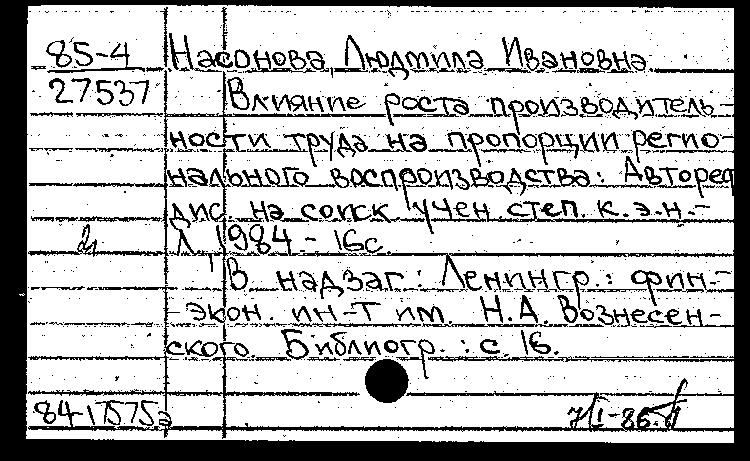 85-4 Насонова, Людмила Ивановна
27537 Влияние роста производитель-
ности труда на пропорции регио-
нального воспроизводства: Автореф
дис. на соиск учен. степ. к.э.н.-
Л 1984.- 16с.
В надзаг.: Ленингр.: фин.-
экон. ин-т им. Н.А. Вознесен-
ского. Библиогр.: с. 16.
84-17575а